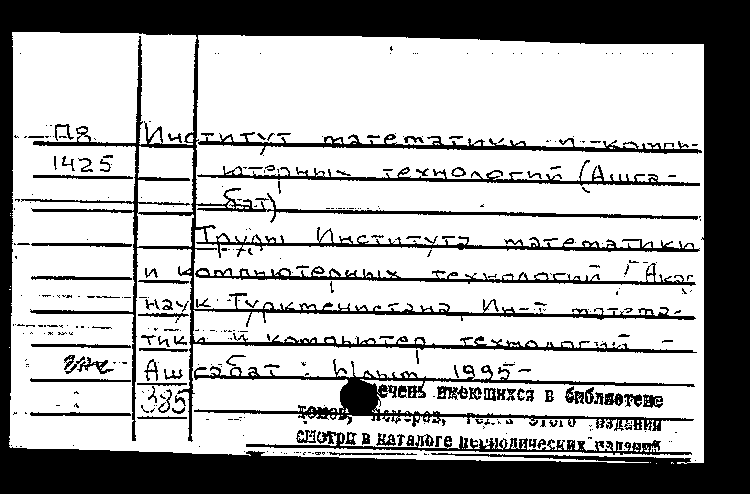 П8 Институт математики и компь-
1425 ютерных технологий (Ашга-
бат)
Труды Института математики
и компьютерных технологий / Акад.
наук Туркменистана, Ин-т матема-
тики и компьютер. технологий -
Ашгабат : Ылым, 1995-
385
имеющихся в библиотеке
томов, номеров, этого издания
смотри в каталоге периодических изданий